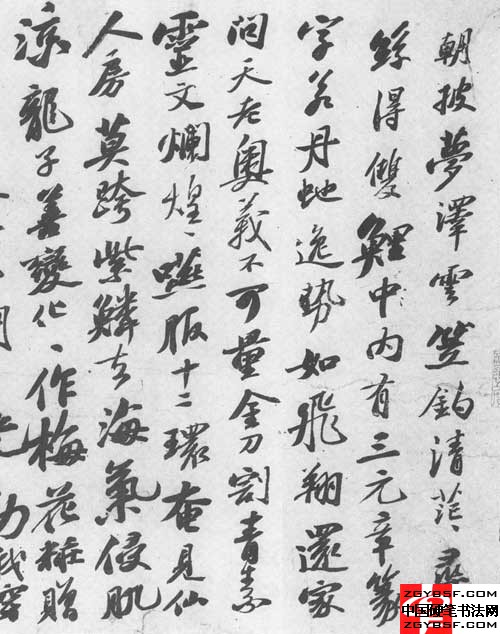 朝披夢澤雲笠釣清茫〻尋
絲得雙鯉中內有三元章篆
字若丹虵逸勢如飛翔還家
問天老奧義不可量金刀割青素
靈文爛煌〻嚥服十二環奄見仙
人房莫跨紫鱗去海氣侵肌
涼龍子善變化〻作梅花粧贈
ZGYBSF.COM
中国硬笔书法网
ZGYBSF.COM